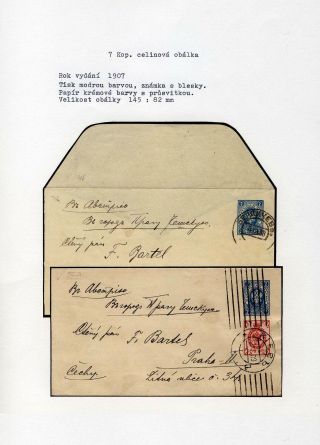 7 Kop. celinová obálka
Rok vydání 1907
Tisk modrou barvou, známka s blesky.
Papír krémové barvy s průsvitkou.
Velikost obálky 145 : 82 mm
Въ Австрію
Въ городъ Прагу Чешскую
Ctěný pán
F. Bartel
Въ Австрію
Въ городъ Прагу Чешскую
Ctěný pán F. Bartel
Praha - II
Žitná ulice č.
Čechy